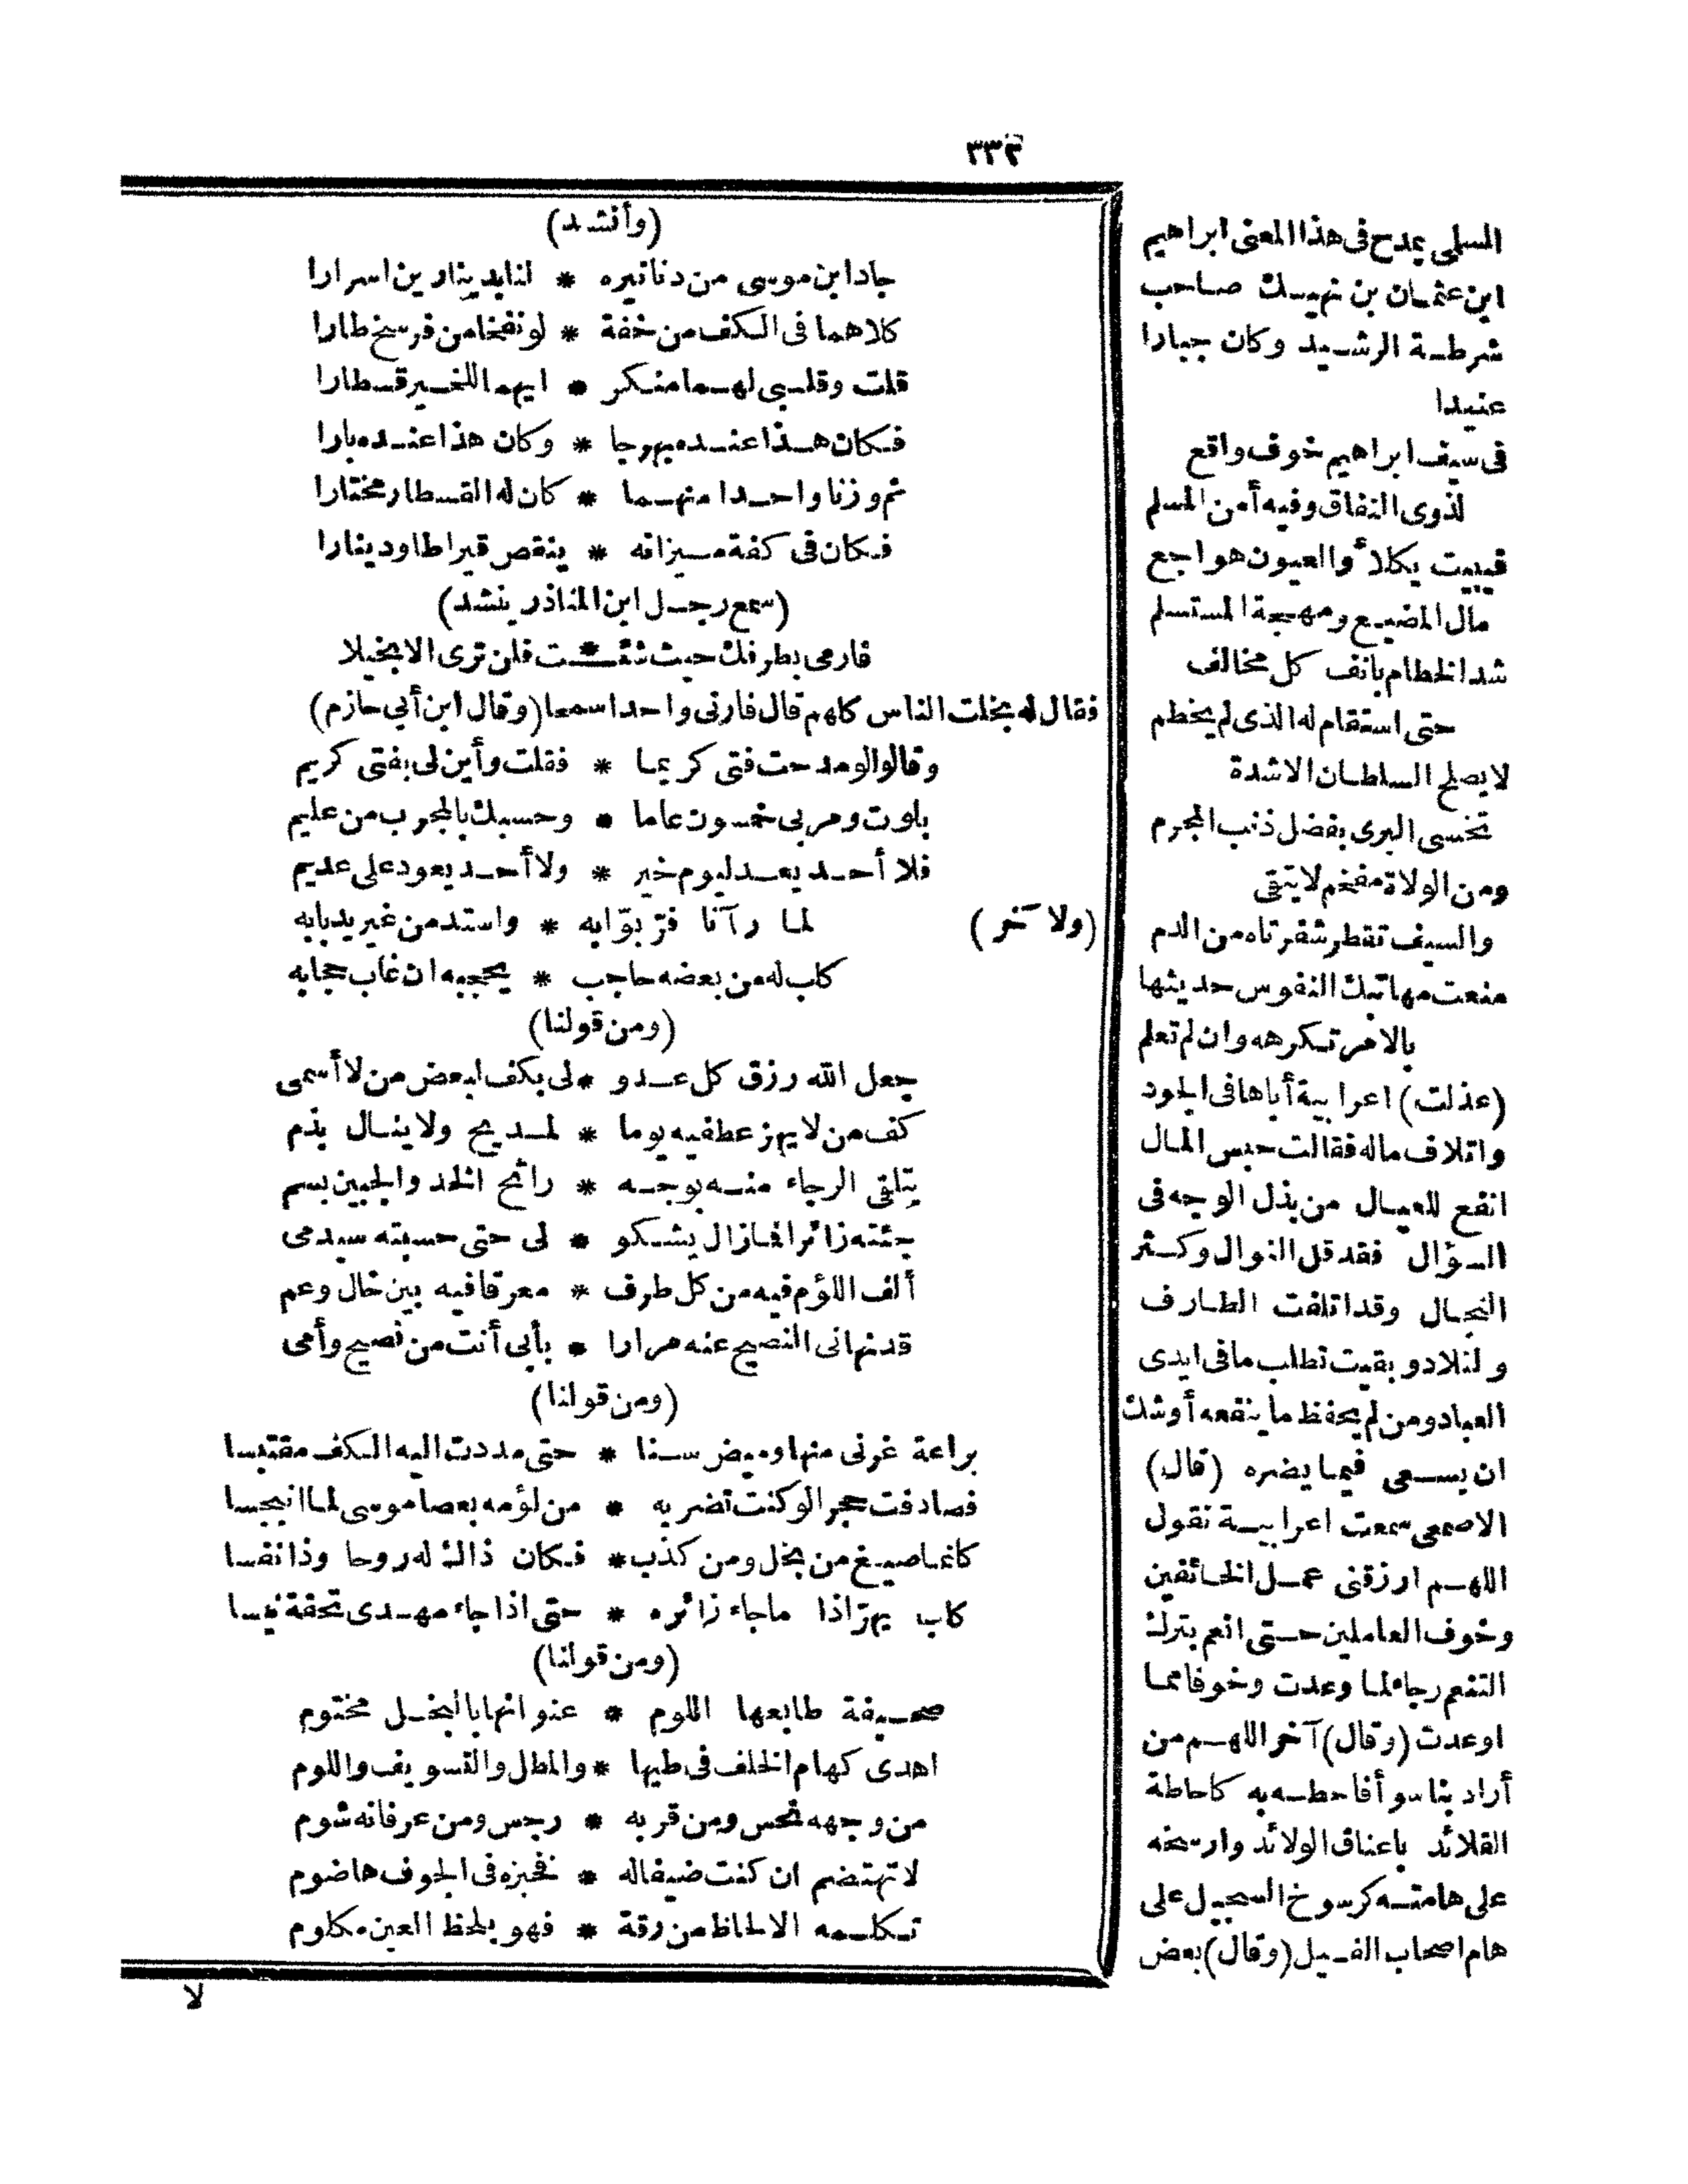 ٣٣٢
(وأنشد)
جاد ابن موسى من دنانيره * لنا بدينارين اسرارا
كلاهما فى الكف من خفة * لو نفخا من فرسخ طارا
قلت وقلبى لهما منكر * ايهما للخير قسطارا
فكان هذا عنده بهرجا * وكان هذا عنده بارا
ثم وزنا واحدا منهما * كان له القسطار مختارا
فكان فى كفة ميزانه * ينقص قيراطا ودينارا
(سمع رجل ابن المناذر ينشد)
فارمى بطرفك حيث شئـ*ـت فلن ترى الا بخيلا
فقال له بخلت الناس كلهم قال فارنى واحدا سمحا (وقال ابن أبى حازم)
وقالوا لو مدحت فتى كريما * فقلت وأين لى بفتى كريم
بلوت ومر بى خمسون عاما * وحسبك بالمجرب من عليم
فلا أحد يعد ليوم خير * ولا أحد يعود على عديم
(ولا آخر) لما رآنا فرّ بوّابه * واستد من غير يد بابه
كاب له من بعضه حاجب * يحجبه ان غاب حجابه
(ومن قولنا)
جعل الله رزق كل عدو * لى بكف لبعض من لا أسمى
كف من لا يهز عطفيه يوما * لمديح ولا ينال بذم
يتلقى الرجاء منه بوجه * رائح الخد والجبين بسم
جئته زائرا فما زال يشكو * لى حتى حسبته سيدمى
ألف اللؤم فيه من كل طرف * معرقا فيه بين خال وعم
قد نهانى النصيح عنه مرارا * بأبى أنت من نصيح وأمى
(ومن قولنا)
براعة غرنى منها وميض سنا * حتى مددت اليه الكف مقتبسا
فصادفت حجرا لو كنت تضربه * من لؤمه بعصا موسى لما انبجسا
كانما صيغ من بخل ومن كذب * فكان ذاك له روحا وذا نفسا
كاب يهرّ اذا ما جاء زائره * حتى اذا جاء مهدى تحفة نبسا
(ومن قولنا)
صحيفة طابعها اللوم * عنوانها بالبخل مختوم
اهدى كهام الخلف فى طيها * والمطل والتسويف واللوم
من وجهه نحس ومن قربه * رجس ومن عرفانه شوم
لا تهتضم ان كنت ضيفا له * فخبزه فى الجوف هاضوم
تكلمه الالحاظ من رقة * فهو بلحظ العين مكلوم
لا
السلمى يمدح فى هذا المعنى ابراهيم
ابن عثمان بن نهيك صاحب
شرطة الرشيد وكان جبارا
عنيدا
فى سيف ابراهيم خوف واقع
لذوى النفاق وفيه أمن المسلم
قيبيت يكلأ والعيون هواجع
مال المضيع ومهجة المستسلم
شد الخطام بانف كل مخالف
حتى استقام له الذى لم يخطم
لا يصلح السلطان الا شدة
تخشى البرى بفضل ذنب المجرم
ومن الولاة مفخم لا يتقى
والسيف تقطر شفرتاه من الدم
منعت مهابتك النفوس حديثها
بالامر تكرهه وان لم تعلم
(عذلت) اعرابية أباها فى الجود
واتلاف ماله فقالت حبس المال
انفع للعيال من بذل الوجه فى
السؤال فقد قل النوال وكثر
البخال وقد اتلفت الطارف
ولتلاد وبقيت تطلب ما فى ايدى
العباد ومن لم يحفظ ما ينفعه أوشك
ان يسعى فيما يضره (قال)
الاصمعى سمعت اعرابية تقول
اللهم ارزقنى عمل الخائفين
وخوف العاملين حتى انعم بترك
التنعم رجاء لما وعدت وخوفا مما
اوعدت (وقال) آخر اللهم من
أراد بنا سوأ فاحطه به كاحاطة
القلائد باعناق الولائد وارسخه
على هامته كرسوخ السجيل على
هام اصحاب الفيل (وقال) بعض